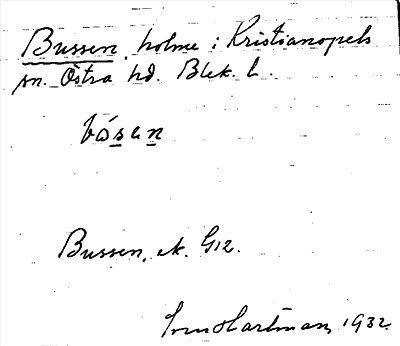 Bussen, holme i Kristianopels
sn. Östra hd. Blek. l.
bósen
Bussen, ek. G12.
Hartman, 1932.